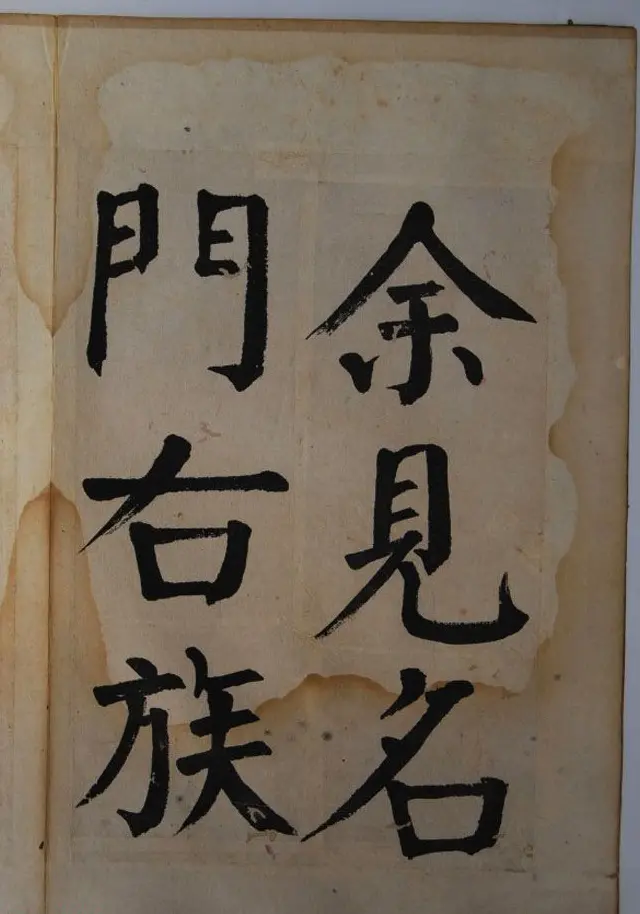 余見名
門右族